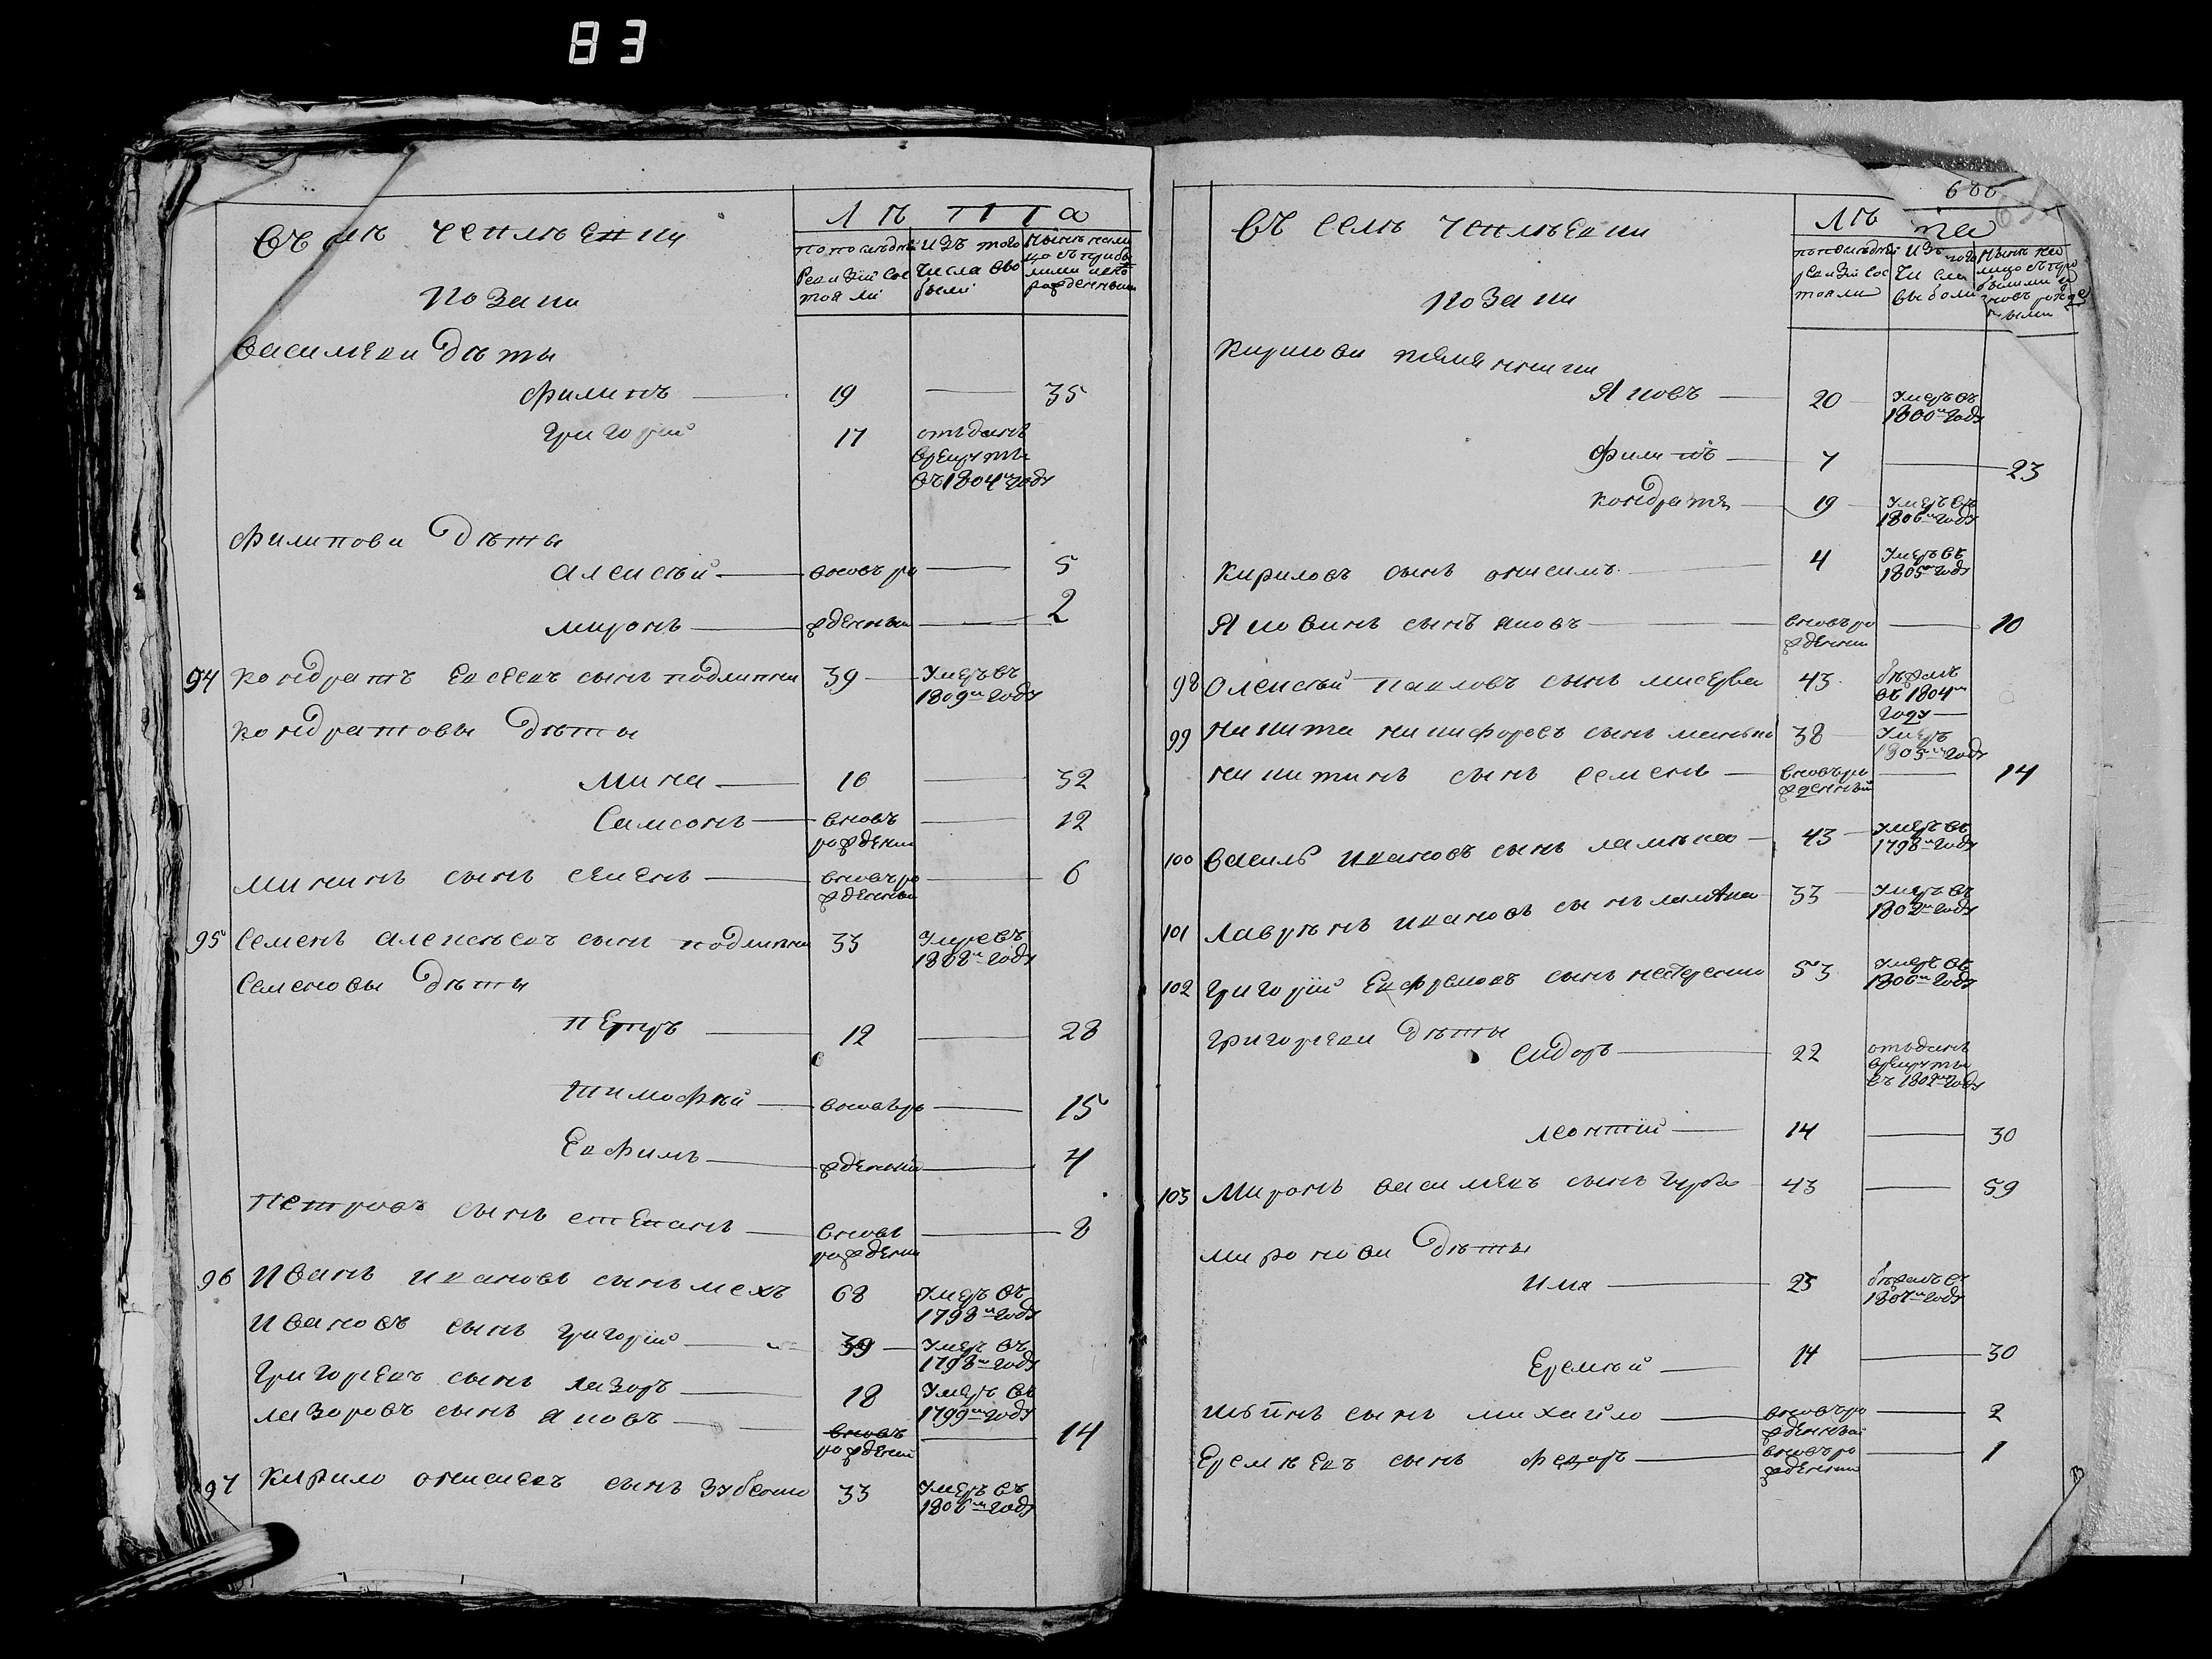 83
Въ
Козаки
Лѣта
По последней Ревизiи Состояли
Изъ того Числа выбыли
Нынѣ на лицо съ прибылими и новорожденными
Васильеви Дѣти
Филипъ 19 — 35
Григорий 17 отъданъ врекруты въ 1804м году
Филипови Дѣти
Алексѣй вновь ро — 5
Миронъ жденныи — 2
94 Кондратъ Евсеевъ сынъ подлипки 39 Умеръ въ 1809м году
Кондратовы Дѣти
Мина 16 — 32
Самсонъ вновь рожденни — 12
Мининъ сынъ семенъ вновь рожденныи — 6
95 Семенъ Алексѣевъ сынъ подлипки 33 Умре въ 1808м году
Семеновы Дѣти
Петръ 12 — 28
Тимофѣй вновь ро — 15
Евфимъ жденный — 4
Петровъ сынъ степанъ вновь рожденни — 8
96 Иванъ Ивановъ сынъ мехъ 68 Умеръ въ 1798м году
Ивановъ сынъ григорий 39 Умеръ въ 1798м году
Григорьевъ сынъ лазоръ 18 Умеръ въ 1799м году
Лазоровъ сынъ яковъ вновь рожденни — 14
97 Кирило онисиевъ сынъ 33 Умеръ въ 1806м году
Въ Селѣ
Козаки
Лѣта
По последней ревизiи состояли
Изъ того Числа выбыли
Нынѣ на лицо съ прибылими и новь рожденными
Кирилови племянники
Яковъ 20 Умеръ въ 1800м году
Филипъ 7 — 23
Кондратъ 19 Умеръ въ 1806м году
Кириловъ сынъ онисимъ 4 Умеръ въ 1805м году
Яковинъ сынъ яковъ вновь рожденни — 10
98 Олексѣй Павловъ сынъ 43 бѣжалъ въ 1804м году
99 Никита никифоровъ сынъ 38 Умеръ 1805м году
Никитинъ сынъ Семенъ вновь рожденный — 14
100 Василь Ивановъ сынъ 43 Умеръ въ 1798м году
101 Лаврѣнъ Ивановъ сынъ 33 Умеръ въ 1802м году
102 Григорий Евфремовъ сынъ 53 Умеръ въ 1806м году
Григорьеви Дѣти
Сидоръ 22 отъданъ врекруты въ 1802м году
Леонтий 14 — 30
103 Миронъ васильевъ сынъ 43 — 59
Миронови Дѣти
Илья 25 бѣжалъ въ 1807м году
Еремѣй 14 — 30
Ильинъ сынъ михайло вновь рожденный — 2
Еремѣевъ сынъ Федоръ вновь рожденни — 1